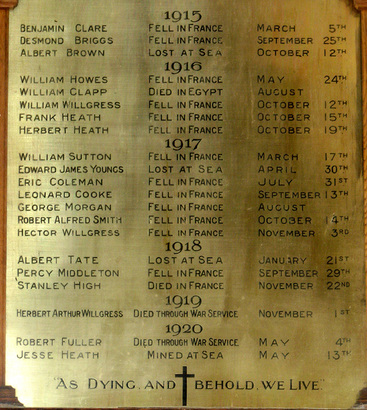 1915
BENJAMIN CLARE FELL IN FRANCE MARCH 5TH
DESMOND BRIGGS FELL IN FRANCE SEPTEMBER 25TH
ALBERT BROWN LOST AT SEA OCTOBER 12TH
1916
WILLIAM HOWES FELL IN FRANCE MAY 24TH
WILLIAM CLAPP DIED IN EGYPT AUGUST
WILLIAM WILLGRESS FELL IN FRANCE OCTOBER 12TH
FRANK HEATH FELL IN FRANCE OCTOBER 15TH
HERBERT HEATH FELL IN FRANCE OCTOBER 19TH
1917
WILLIAM SUTTON FELL IN FRANCE MARCH 17TH
EDWARD JAMES YOUNGS LOST AT SEA APRIL 30TH
ERIC COLEMAN FELL IN FRANCE JULY 31ST
LEONARD COOKE FELL IN FRANCE SEPTEMBER 13TH
GEORGE MORGAN FELL IN FRANCE AUGUST
ROBERT ALFRED SMITH FELL IN FRANCE OCTOBER 14TH
HECTOR WILLGRESS FELL IN FRANCE NOVEMBER 3RD
1918
ALBERT TATE LOST AT SEA JANUARY 21ST
PERCY MIDDLETON FELL IN FRANCE SEPTEMBER 29TH
STANLEY HIGH DIED IN FRANCE NOVEMBER 22ND
1919
HERBERT ARTHUR WILLGRESS DIED THROUGH WAR SERVICE NOVEMBER 1ST
1920
ROBERT FULLER DIED THROUGH WAR SERVICE MAY 4TH
JESSE HEATH MINED AT SEA MAY 13TH
"AS DYING, AND BEHOLD, WE LIVE"